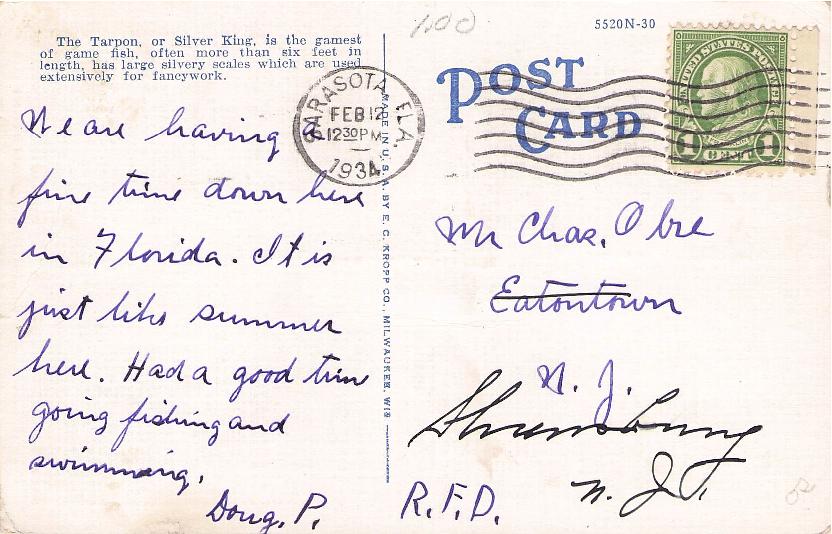 The Tarpon, or Silver King, is the gamest
of game fish, often more than six feet in
length, has large silvery scales which are used
extensively for fancywork.
1.00
5520N-30
POST
CARD
SARASOTA, FLA.
FEB 12
12 30 PM
1934
UNITED STATES POSTAGE
1 CENT 1
MADE IN U.S.A. BY E. C. KROPP CO., MILWAUKEE, WIS
We are having a
fine time down here
in Florida. It is
just like summer
here. Had a good time
going fishing and
swimming.
Doug. P.
Mr Chas. Obre
Eatontown
N. J.
Shrewsbury
N. J.
R.F.D.